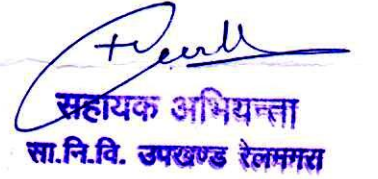 सहायक अभियन्ता
सा.नि.वि. उपखण्ड रेलमगरा